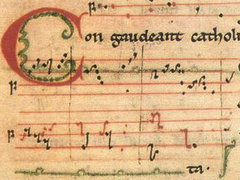 Congaudeant catholi
ta.